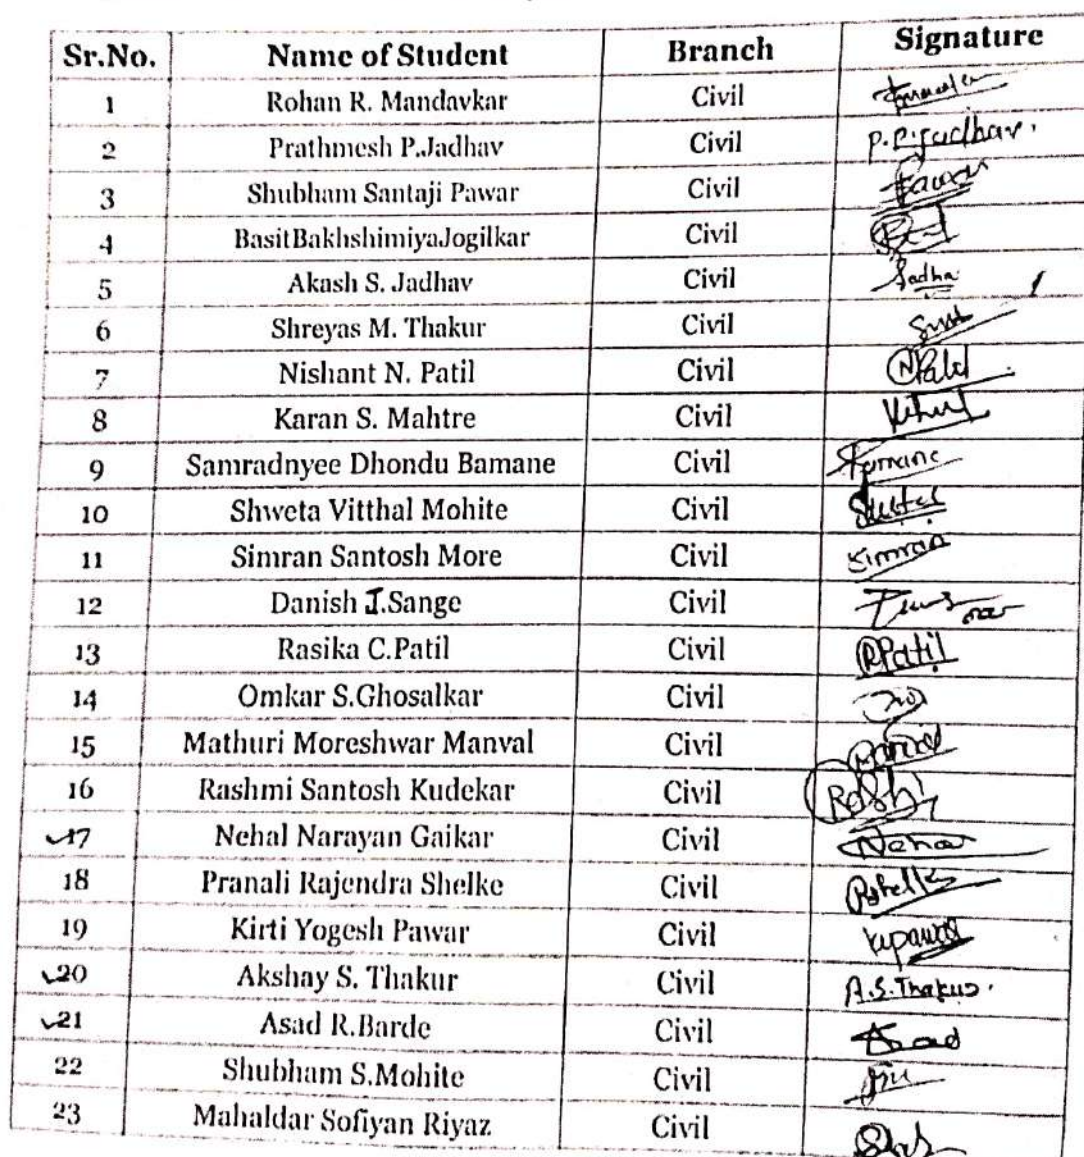 Sr.No. Name of Student Branch Signature
1 Rohan R. Mandavkar Civil
2 Prathmesh P.Jadhav Civil P.P.Jadhav.
3 Shubham Santaji Pawar Civil Pawar
4 BasitBakhshimiyaJogilkar Civil
5 Akash S. Jadhav Civil Jadhav
6 Shreyas M. Thakur Civil
7 Nishant N. Patil Civil NPatil
8 Karan S. Mahtre Civil
9 Samradnyee Dhondu Bamane Civil
10 Shweta Vitthal Mohite Civil
11 Simran Santosh More Civil Simran
12 Danish J.Sange Civil
13 Rasika C.Patil Civil RPatil
14 Omkar S.Ghosalkar Civil
15 Mathuri Moreshwar Manval Civil
16 Rashmi Santosh Kudekar Civil Rashi
17 Nehal Narayan Gaikar Civil
18 Pranali Rajendra Shelke Civil
19 Kirti Yogesh Pawar Civil
20 Akshay S. Thakur Civil A.S.Thakur.
21 Asad R.Barde Civil Asad
22 Shubham S.Mohite Civil
23 Mahaldar Sofiyan Riyaz Civil